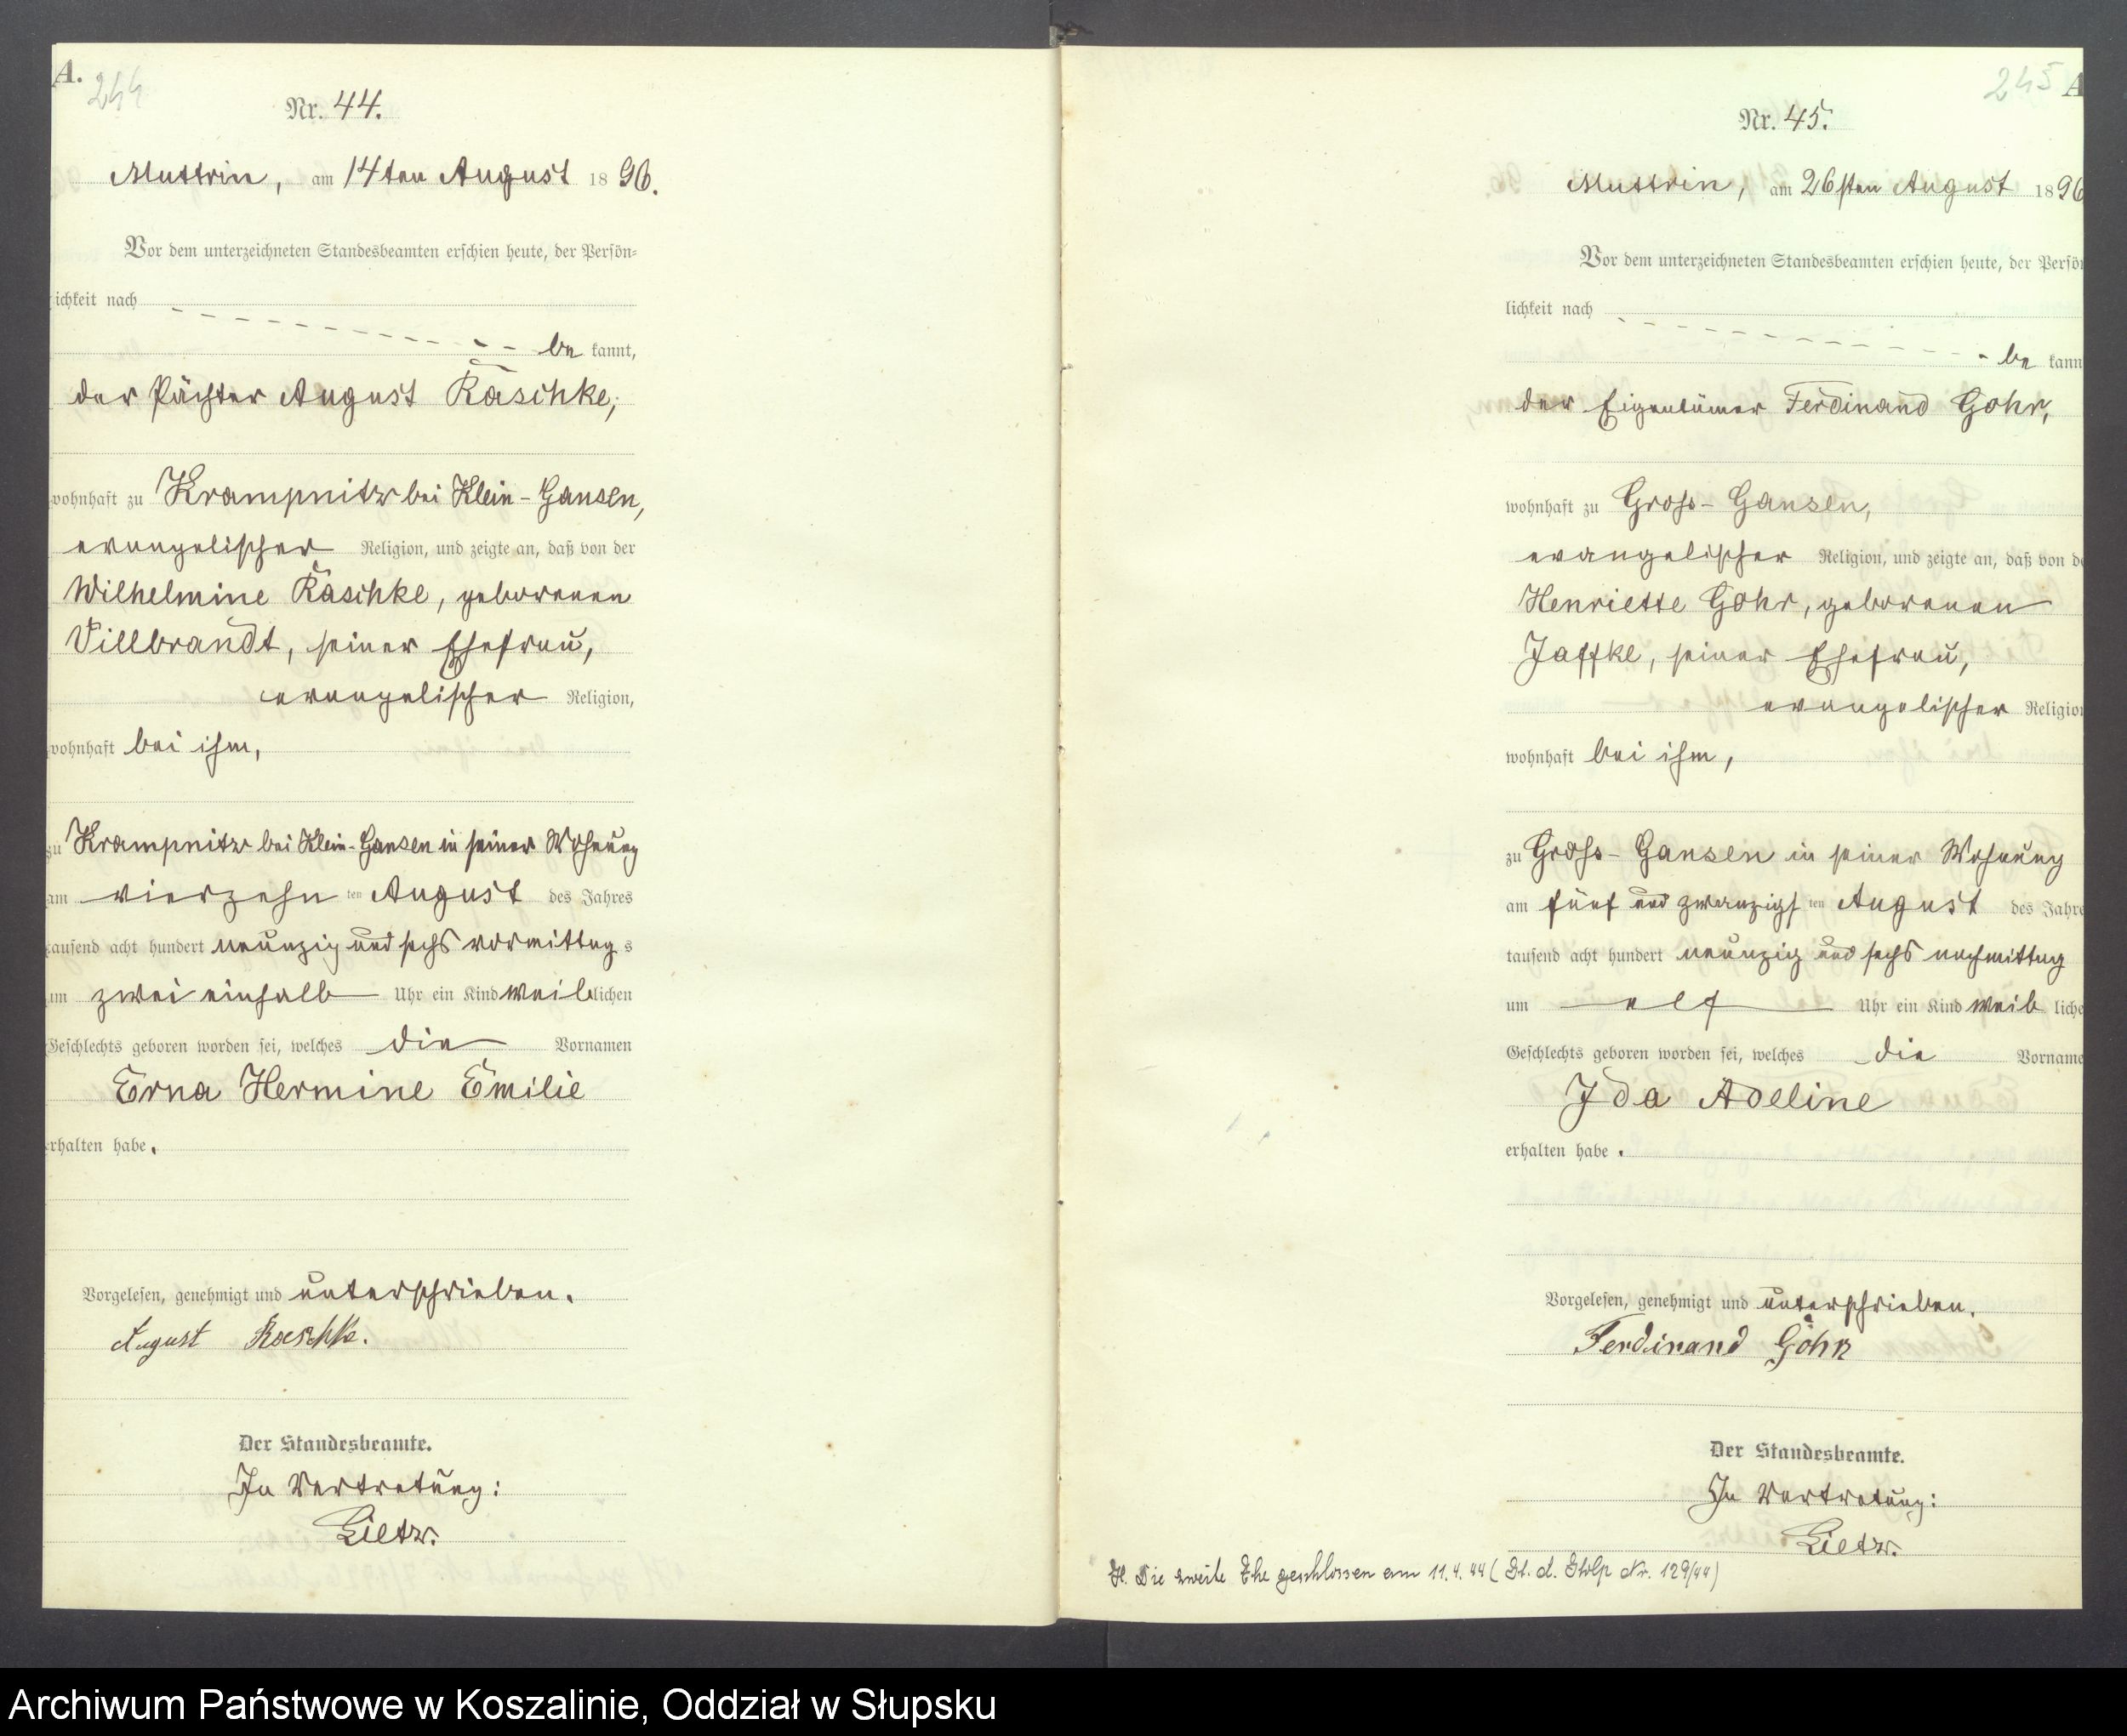 A.
244
Nr. 44.
Muttrin, am 14ten August 1896.
Vor dem unterzeichneten Standesbeamten erschien heute, der Persön-
lichkeit nach
be kannt,
der Pächter August Raschke,
wohnhaft zu Krampnitz bei Klein-Gansen,
evangelischer Religion, und zeigte an, daß von der
Wilhelmine Raschke, geborenen
Villbrandt, seiner Ehefrau,
evangelischer Religion,
wohnhaft bei ihm,
zu Krampnitz bei Klein-Gansen in seiner Wohnung
am vierzehn ten August des Jahres
tausend acht hundert neunzig und sechs vormittag s
um zwei einhalb Uhr ein Kind weiblichen
Geschlechts geboren worden sei, welches die Vornamen
Erna Hermine Emilie
erhalten habe.
Vorgelesen, genehmigt und unterschrieben.
August Raschke.
Der Standesbeamte.
In Vertretung:
Lietz.
245
A
Nr. 45.
Muttrin, am 26sten August 1896
Vor dem unterzeichneten Standesbeamten erschien heute, der Persön
lichkeit nach
be kann
der Eigentümer Ferdinand Gohr,
wohnhaft zu Gross-Gansen,
evangelischer Religion, und zeigte an, daß von de
Henriette Gohr, geborenen
Jaffke, seiner Ehefrau,
evangelischer Religion
wohnhaft bei ihm,
zu Gross-Gansen in seiner Wohnung
am fünf und zwanzigs ten August des Jahre
tausend acht hundert neunzig und sechs nachmittag
um elf Uhr ein Kind weib liche
Geschlechts geboren worden sei, welches die Vorname
Ida Adeline
erhalten habe.
Vorgelesen, genehmigt und unterschrieben.
Ferdinand Gohr
Der Standesbeamte.
In Vertretung:
Lietz.
H. Die zweite Ehe geschlossen am 11.4.44 (St. A. Stolp Nr. 129/44)
Archiwum Państwowe w Koszalinie, Oddział w Słupsku